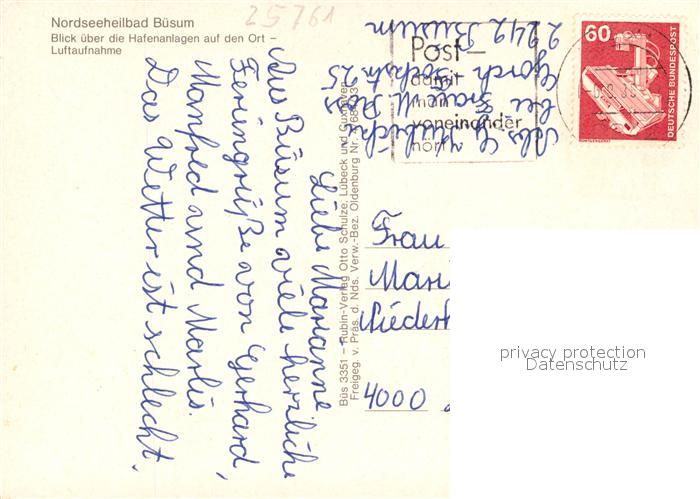 Nordseeheilbad Büsum
Blick über die Hafenanlagen auf den Ort –
Luftaufnahme
25761
Liebe Marianne.
Aus Büsum viele herzliche
Feriengrüße von Gerhard,
Manfred und Marlis.
Das Wetter ist schlecht.
Büs 3351 – Rubin-Verlag Otto Schulze, Lübeck und Cuxhaven
Freigeg. v. Präs. d. Nds. Verw.-Bez. Oldenburg Nr.
bei Frau
Gorch Fockstr. 25
2242 Büsum
Post–
damit
wir
voneinander
hören
60
DEUTSCHE BUNDESPOST
Frau
Niederk
4000
privacy protection
Datenschutz